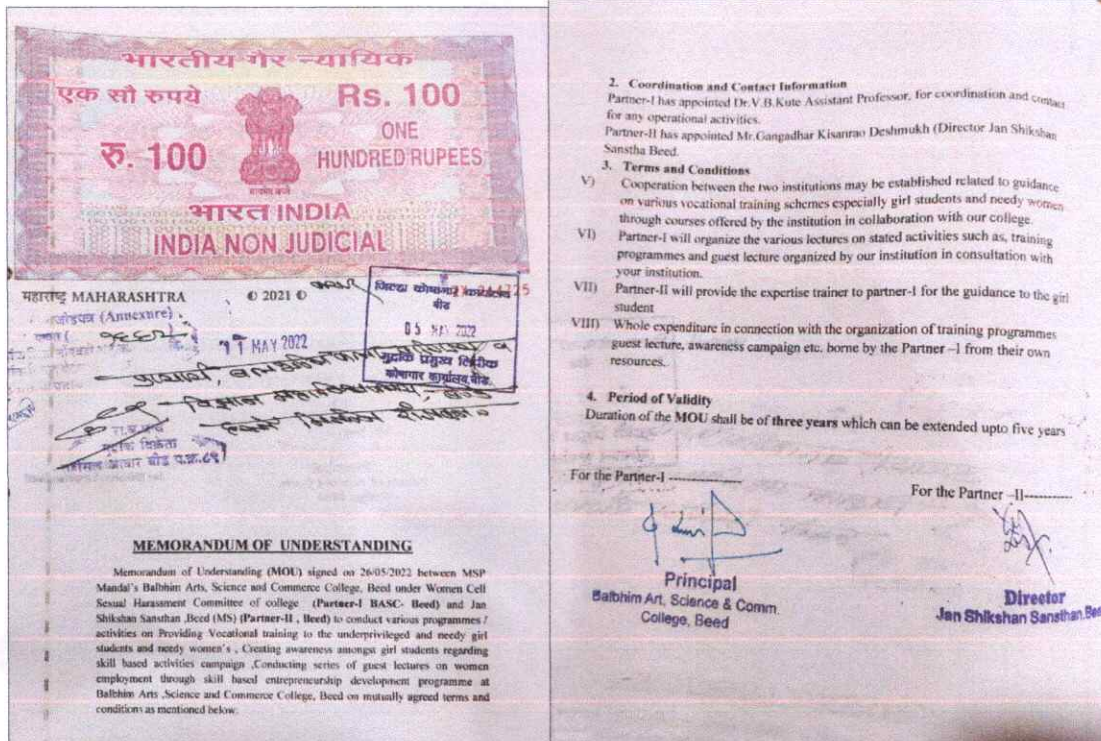 भारतीय गैर न्यायिक
एक सौ रुपये
Rs. 100
रु. 100
ONE
HUNDRED RUPEES
सत्यमेव जयते
भारत INDIA
INDIA NON JUDICIAL
महाराष्ट्र MAHARASHTRA
© 2021 ©
जोडपत्र (Annexure)
11 MAY 2022
जिल्हा कोषागार कार्यालय
बीड
05 MAY 2022
मुद्रांक प्रमुख लिपीक
कोषागार कार्यालय, बीड.
मुद्रांक विक्रेता
MEMORANDUM OF UNDERSTANDING
Memorandum of Understanding (MOU) signed on 26/05/2022 between MSP
Mandal's Balbhim Arts, Science and Commerce College, Beed under Women Cell
Sexual Harassment Committee of college (Partner-I BASC- Beed) and Jan
Shikshan Sansthan ,Beed (MS) (Partner-II , Beed) to conduct various programmes /
activities on Providing Vocational training to the underprivileged and needy girl
students and needy women's , Creating awareness amongst girl students regarding
skill based activities campaign ,Conducting series of guest lectures on women
employment through skill based entrepreneurship development programme at
Balbhim Arts ,Science and Commerce College, Beed on mutually agreed terms and
conditions as mentioned below:
2. Coordination and Contact Information
Partner-I has appointed Dr.V.B.Kute Assistant Professor, for coordination and contact
for any operational activities.
Partner-II has appointed Mr.Gangadhar Kisanrao Deshmukh (Director Jan Shikshan
Sanstha Beed.
3. Terms and Conditions
V) Cooperation between the two institutions may be established related to guidance
on various vocational training schemes especially girl students and needy women
through courses offered by the institution in collaboration with our college.
VI) Partner-I will organize the various lectures on stated activities such as, training
programmes and guest lecture organized by our institution in consultation with
your institution.
VII) Partner-II will provide the expertise trainer to partner-I for the guidance to the girl
student
VIII) Whole expenditure in connection with the organization of training programmes
guest lecture, awareness campaign etc. borne by the Partner –I from their own
resources.
4. Period of Validity
Duration of the MOU shall be of three years which can be extended upto five years
For the Partner-I ------------
For the Partner –II-----------
Principal
Balbhim Art, Science & Comm.
College, Beed
Director
Jan Shikshan Sansthan,Beed